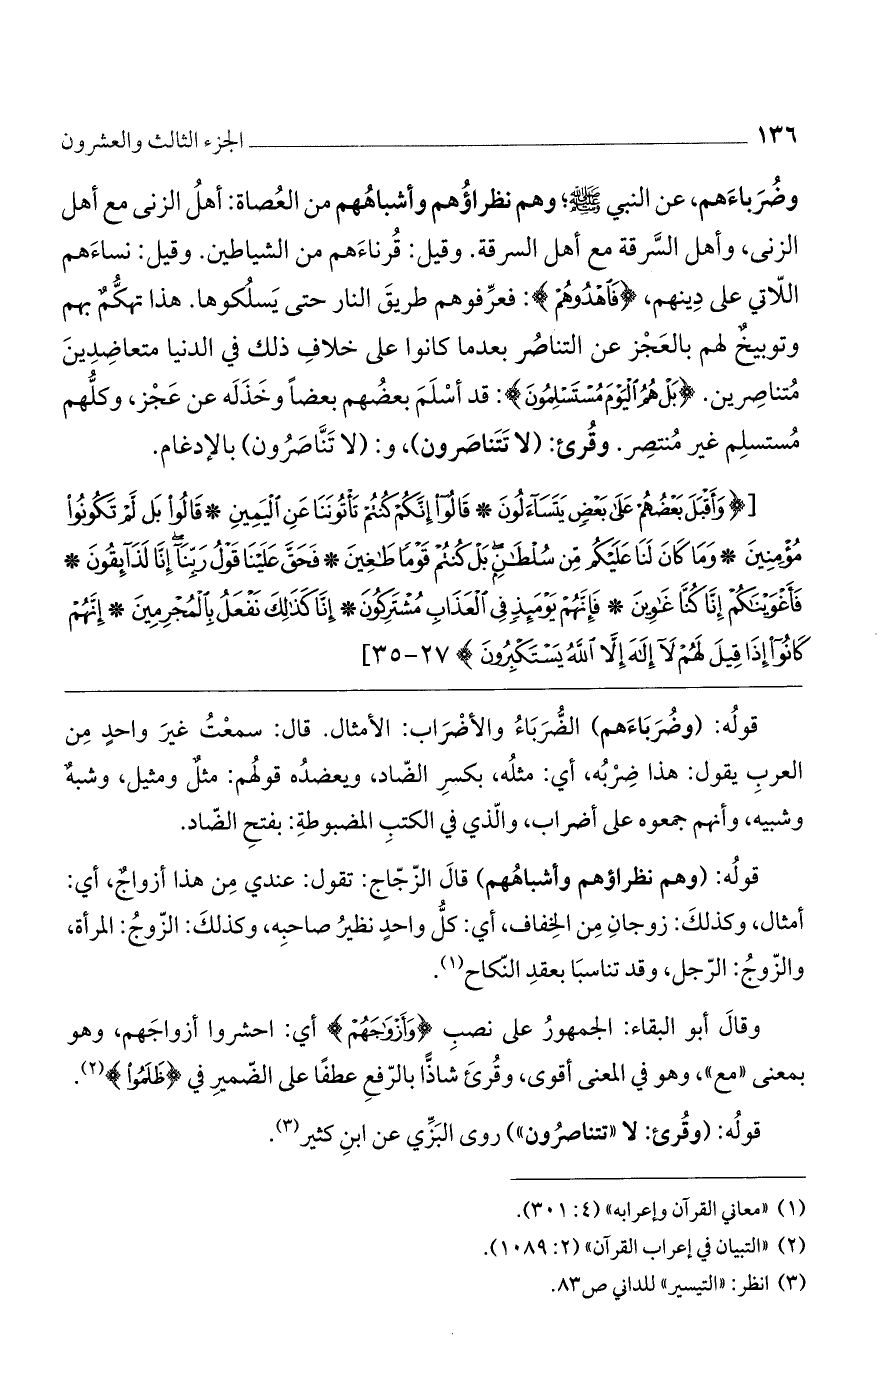 ١٣٦ ـــــــــــــــــ الجزء الثالث والعشرون
وضُرَباءَهم، عن النبي ﷺ؛ وهم نظراؤُهم وأشباهُهم من العُصاة: أهلُ الزنى مع أهل
الزنى، وأهل السَّرقة مع أهل السرقة. وقيل: قُرناءَهم من الشياطين. وقيل: نساءَهم
اللّاتي على دِينهم، ﴿فَٱهْدُوهُمْ﴾: فعرِّفوهم طريقَ النار حتى يَسلُكوها. هذا تهكُّمٌ بهم
وتوبيخٌ لهم بالعَجْز عن التناصُر بعدما كانوا على خلافِ ذلك في الدنيا متعاضِدِينَ
مُتناصِرين. ﴿بَلْ هُمُ ٱلْيَوْمَ مُسْتَسْلِمُونَ﴾: قد أسْلَمَ بعضُهم بعضاً وخَذَلَه عن عَجْز، وكلُّهم
مُستسلِم غير مُنتصِر. وقُرئ: (لا تَتَناصَرون)، و: (لا تَنَّاصَرُون) بالإدغام.
[﴿وَأَقْبَلَ بَعْضُهُمْ عَلَىٰ بَعْضٍ يَتَسَآءَلُونَ * قَالُوٓا۟ إِنَّكُمْ كُنتُمْ تَأْتُونَنَا عَنِ ٱلْيَمِينِ * قَالُوا۟ بَل لَّمْ تَكُونُوا۟
مُؤْمِنِينَ * وَمَا كَانَ لَنَا عَلَيْكُم مِّن سُلْطَـٰنٍۭ ۖ بَلْ كُنتُمْ قَوْمًا طَـٰغِينَ * فَحَقَّ عَلَيْنَا قَوْلُ رَبِّنَآ ۖ إِنَّا لَذَآئِقُونَ *
فَأَغْوَيْنَـٰكُمْ إِنَّا كُنَّا غَـٰوِينَ * فَإِنَّهُمْ يَوْمَئِذٍ فِى ٱلْعَذَابِ مُشْتَرِكُونَ * إِنَّا كَذَٰلِكَ نَفْعَلُ بِٱلْمُجْرِمِينَ * إِنَّهُمْ
كَانُوٓا۟ إِذَا قِيلَ لَهُمْ لَآ إِلَـٰهَ إِلَّا ٱللَّهُ يَسْتَكْبِرُونَ﴾ ٢٧-٣٥]
قولُه: (وضُرَبَاءَهم) الضُّرَبَاءُ والأضْرَاب: الأمثال. قال: سمعْتُ غيرَ واحدٍ مِن
العربِ يقول: هذا ضِرْبُه، أي: مثلُه، بكسرِ الضّاد، ويعضدُه قولُهم: مثلٌ ومثيل، وشبهٌ
وشبيه، وأنهم جمعوه على أضراب، والّذي في الكتبِ المضبوطةِ: بفتحِ الضّاد.
قولُه: (وهم نظراؤهم وأشباهُهم) قالَ الزّجّاج: تقول: عندي مِن هذا أزواجٌ، أي:
أمثال، وكذلكَ: زوجانِ مِن الخِفاف، أي: كلُّ واحدٍ نظيرُ صاحبِه، وكذلكَ: الزّوجُ: المرأة،
والزّوجُ: الرّجل، وقد تناسبَا بعقدِ النّكاح(١).
وقالَ أبو البقاء: الجمهورُ على نصبِ ﴿وَأَزْوَٰجَهُمْ﴾ أي: احشروا أزواجَهم، وهو
بمعنى «مع»، وهو في المعنى أقوى، وقُرئَ شاذًّا بالرّفعِ عطفًا على الضّميرِ في ﴿ظَلَمُوا۟﴾(٢).
قولُه: (وقُرئ: لا «تتناصرُون») روى البَزِّي عن ابنِ كثير(٣).
(١) «معاني القرآن وإعرابه» (٤: ٣٠١).
(٢) «التبيان في إعراب القرآن» (٢: ١٠٨٩).
(٣) انظر: «التيسير» للداني ص٨٣.